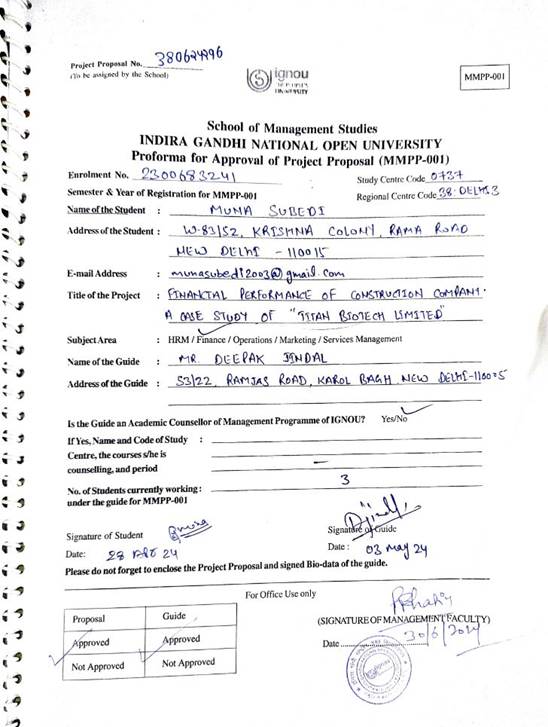 Project Proposal No. 380624296
(To be assigned by the School)
ignou
THE PEOPLE'S
UNIVERSITY
MMPP-001
School of Management Studies
INDIRA GANDHI NATIONAL OPEN UNIVERSITY
Proforma for Approval of Project Proposal (MMPP-001)
Enrolment No. 2300683241
Study Centre Code 0737
Semester & Year of Registration for MMPP-001
Regional Centre Code 38-DELHI 3
Name of the Student : MUNA SUBEDI
Address of the Student : W-83/S2, KRISHNA COLONY, RAMA ROAD
NEW DELHI - 110015
E-mail Address : munasubedi2003@gmail.com
Title of the Project : FINANCIAL PERFORMANCE OF CONSTRUCTION COMPANY.
A CASE STUDY OF "TITAN BIOTECH LIMITED"
Subject Area : HRM / Finance / Operations / Marketing / Services Management
Name of the Guide : MR. DEEPAK JINDAL
Address of the Guide : 53/22, RAMJAS ROAD, KAROL BAGH NEW DELHI-110005
Is the Guide an Academic Counsellor of Management Programme of IGNOU? Yes/No
If Yes, Name and Code of Study :
Centre, the courses s/he is
counselling, and period —
No. of Students currently working : 3
under the guide for MMPP-001
Signature of Student
Signature of Guide
Date: 28 APR 24
Date : 03 May 24
Please do not forget to enclose the Project Proposal and signed Bio-data of the guide.
For Office Use only
Proposal Guide
Approved Approved
Not Approved Not Approved
(SIGNATURE OF MANAGEMENT FACULTY)
Date 30/6/2024
ignou